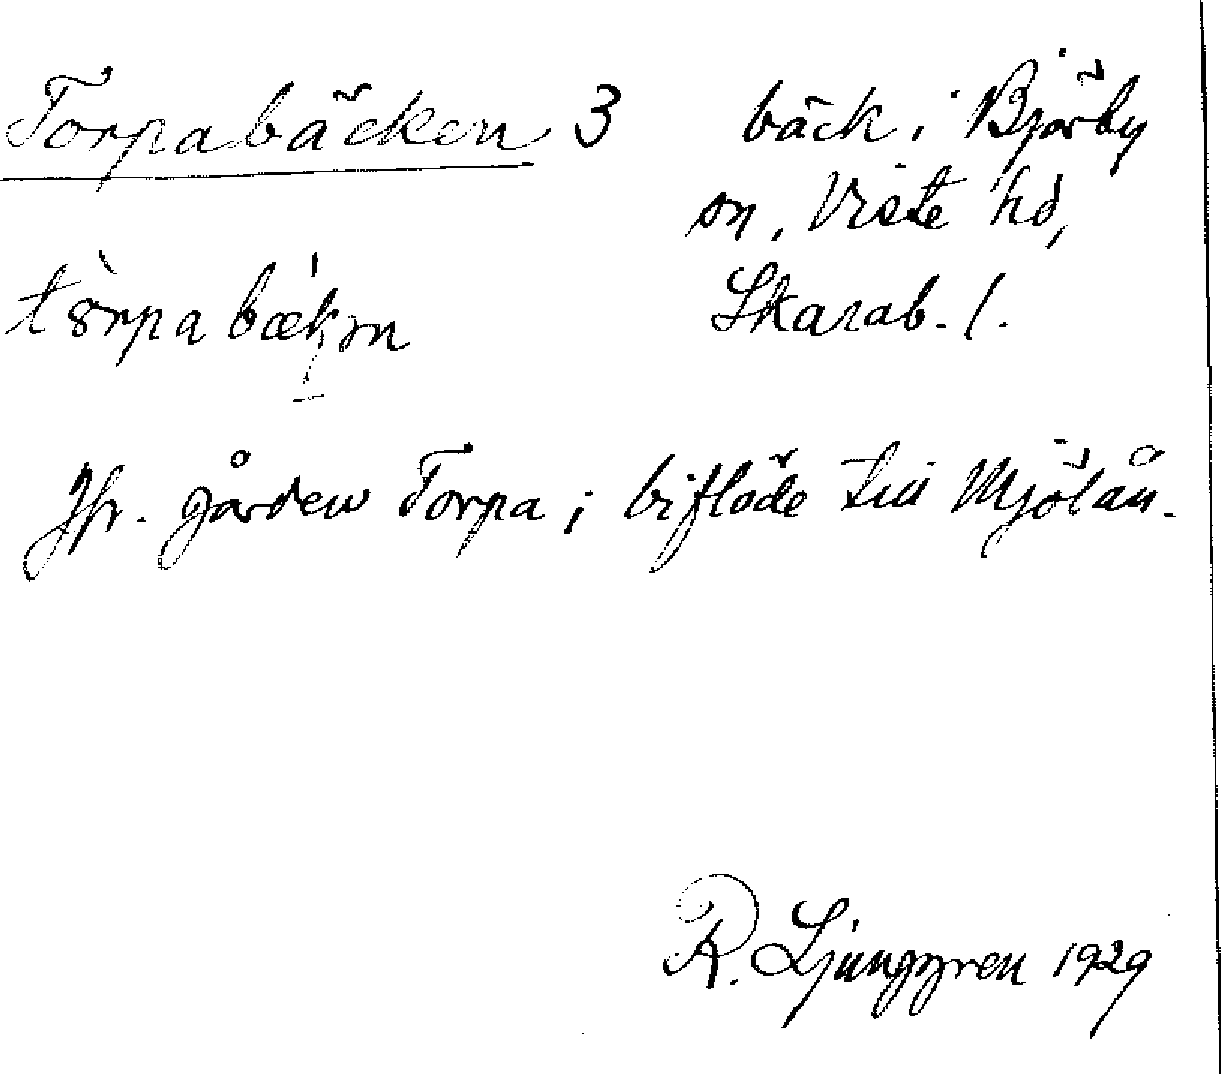 Torpabäcken 3 bäck i Bjärby
sn, Viste hd,
Skarab. l.
tòrpabækən
Jfr. gården Torpa; biflöde till Mjölån.
R. Ljunggren 1929